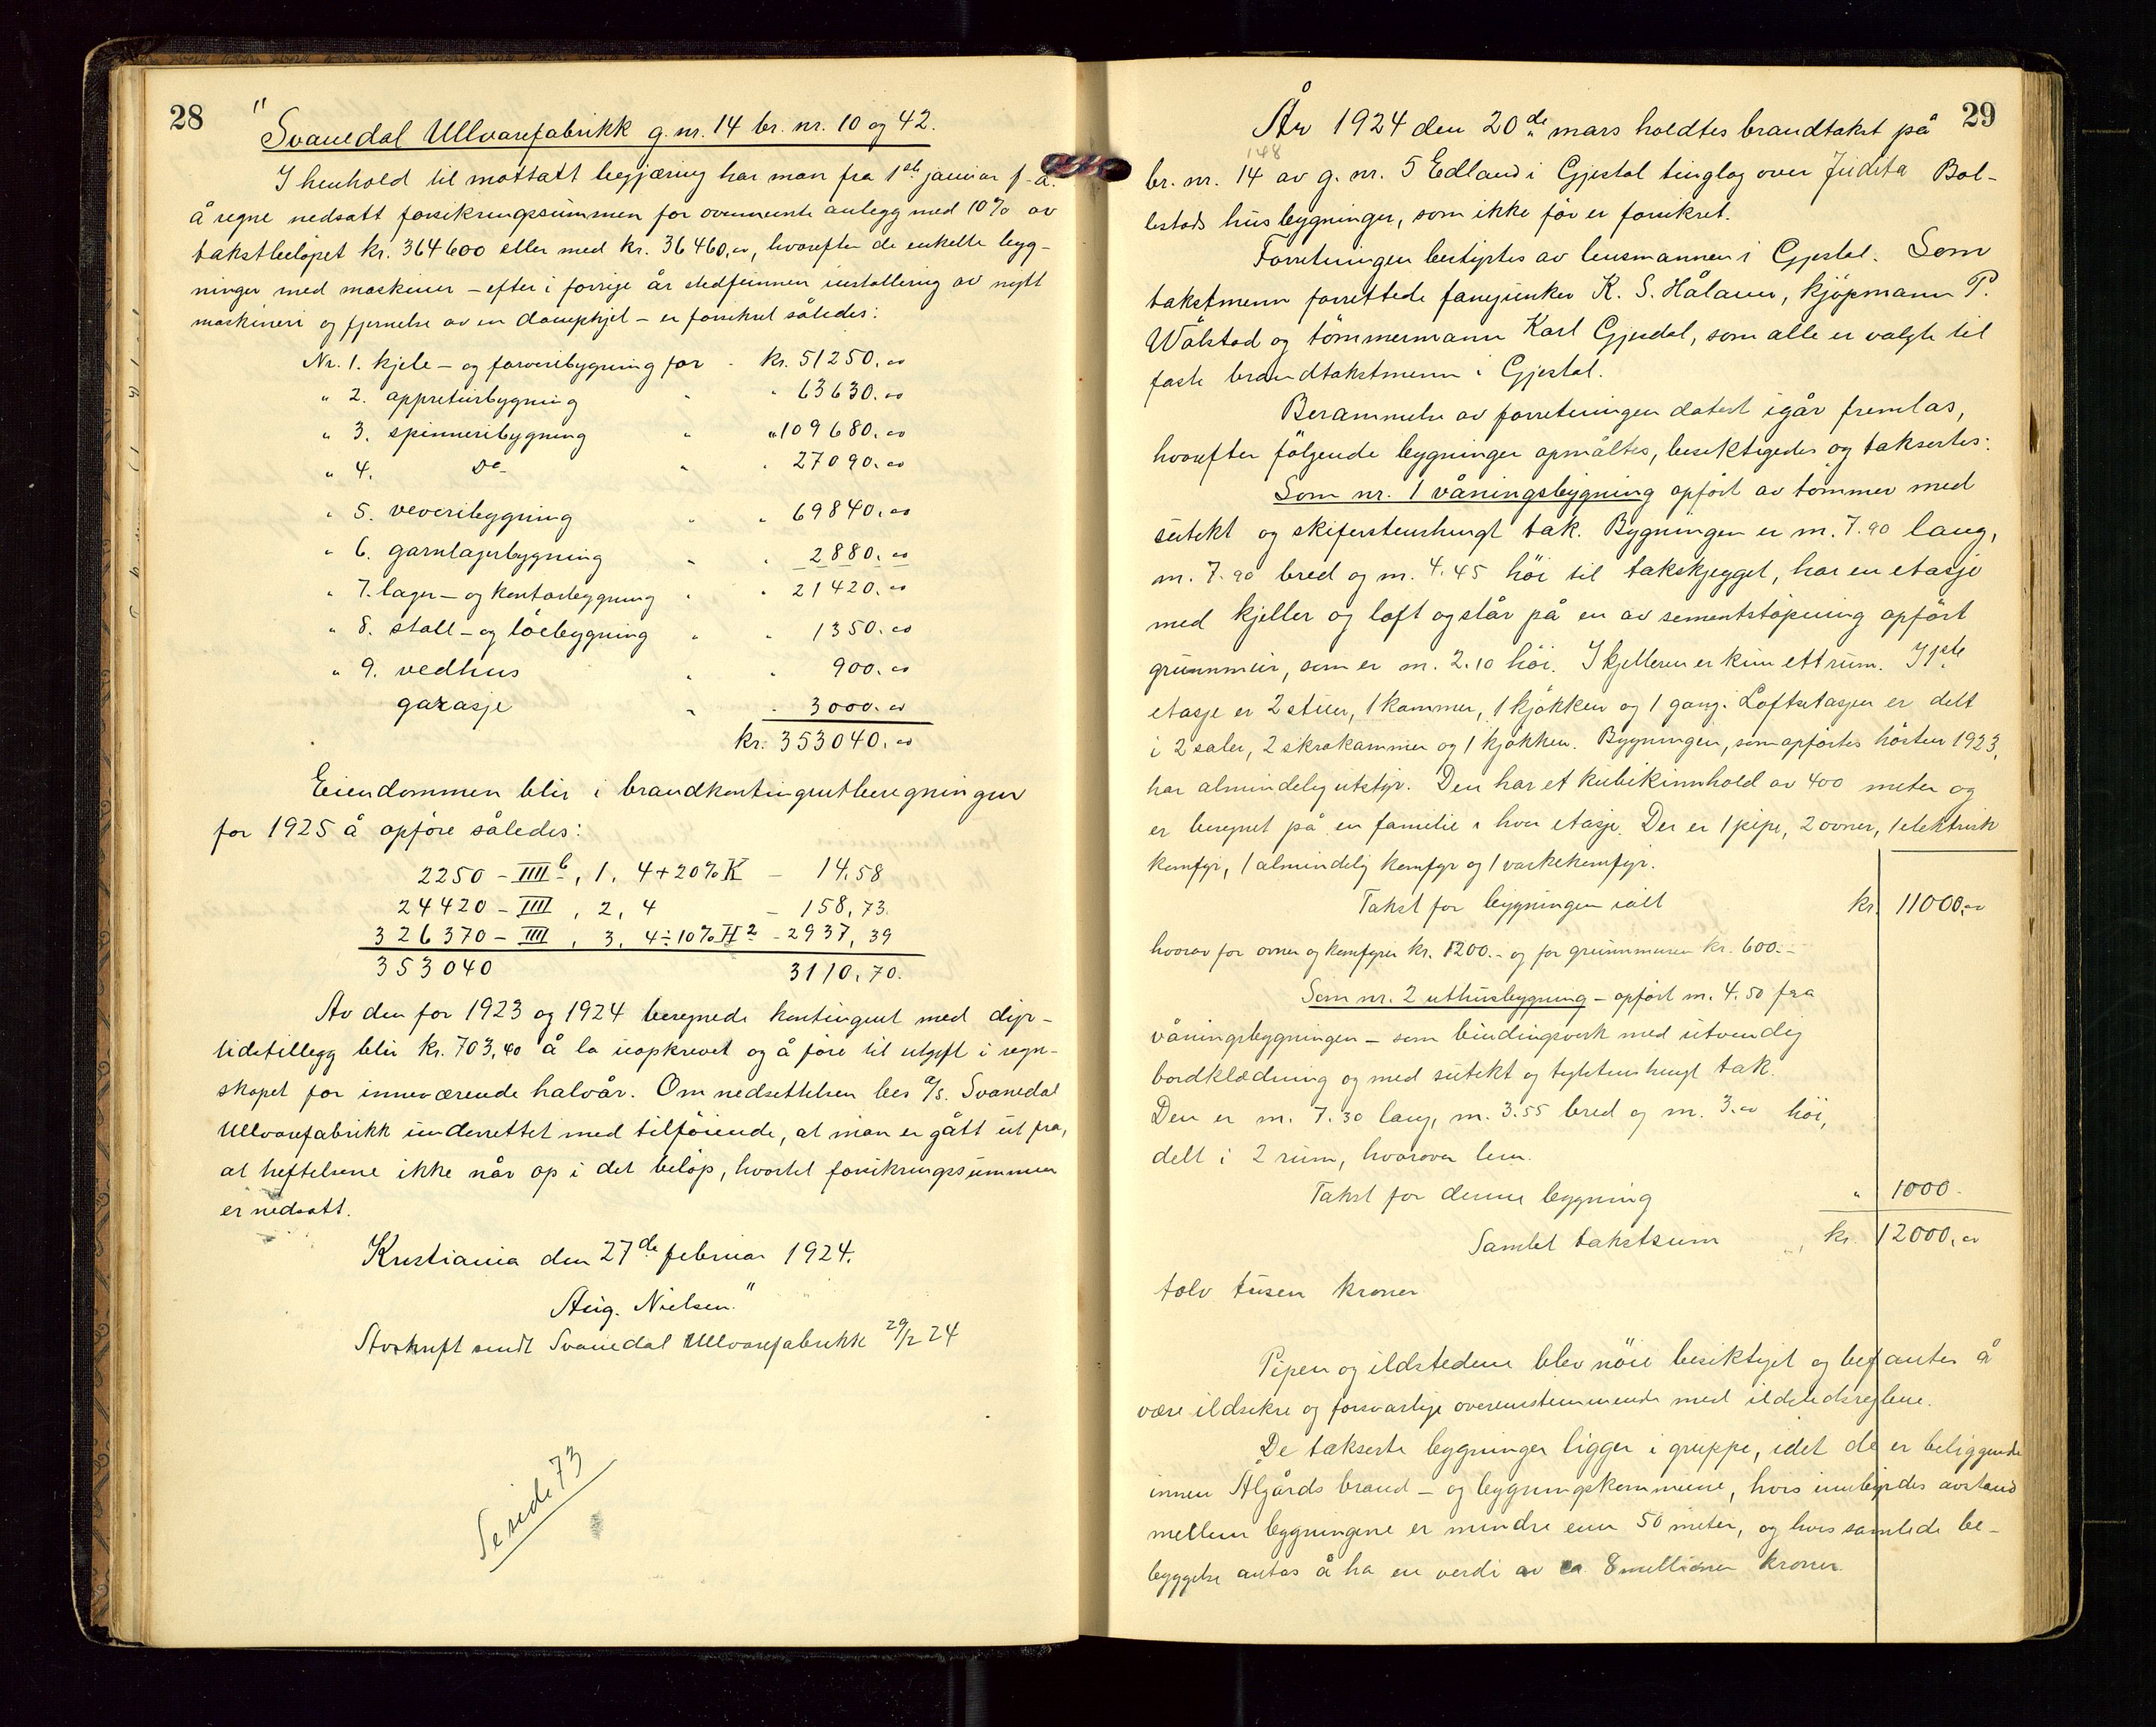 28
"Svanedal Ullvarefabrikk g. nr. 14 br. nr. 10 og 42.
I henhold til mottatt begjæring har man fra 1ste januar f. å.
å regne nedsatt forsikringssummen for ovennevnte anlegg med 10% av
takstbeløpet kr. 364600 eller med kr. 36460,00, hvorefter de enkelte byg-
ninger med maskiner – efter i forrige år stedfunnen installering av nytt
maskineri og fjernelse av en dampkjel – er forsikret således:
Nr. 1. kjele – og farveribygning for - kr. 51250.00
" 2. appreturbygning " " 63630.00
" 3. spinneribygning " " 109680.00
" 4. Do " " 27090.00
" 5. veveribygning " " 69840.00
" 6. garnlagerbygning " " 2880.00
" 7. lager – og kontorbygning " " 21420.00
" 8. stall – og löebygning " " 1350.00
" 9. vedhus " " 900.00
garasje " " 3000.00
kr. 353040.00
Eiendommen blir i brandkontingentberegningen
for 1925 å opføre således:
2250 – IIII b, 1. 4+20% K – 14.58
24420 – IIII, 2, 4 – 158,73.
326370 – IIII, 3. 4÷10% H2 - 2937,39
353040 3110,70.
Av den for 1923 og 1924 beregnede kontingent med dyr-
tidstillegg blir kr. 703,40 å la uopkrevet og å føre til utgift i regn-
skapet for inneværende halvår. Om nedsettelsen bes A/S. Svanedal
Ullvarefabrikk underrettet med tilføiende, at man er gått ut fra,
at heftelsene ikke når op i det beløp, hvortil forsikringssummen
er nedsatt.
Kristiania den 27de februar 1924.
Aug. Nielsen."
Avskrift sendt Svanedal Ullvarefabrikk 29/2 24
Se side 73
29
År 1924 den 20de mars holdtes brandtakst på
148
br. nr. 14 av g. nr. 5 Edland i Gjestal tinglag over Judita Bol-
lestads husbygninger, som ikke før er forsikret.
Forretningen bestyrtes av lensmannen i Gjestal. Som
takstmenn forrettede fanejunker K. S. Håland, kjøpmann P.
Wålstad og tömmermann Karl Gjesdal, som alle er valgte til
faste brandtakstmenn i Gjestal.
Berammelse av forretningen datert igår fremlas,
hvorefter fölgende bygninger opmåltes, besiktigedes og taksertes:
Som nr. 1 våningsbygning opfört av tömmer med
sutekt og skiferstenshengt tak. Bygningen er m. 7.90 lang,
m. 7.90 bred og m. 4.45 höi til takskjegget, har en etasje
med kjeller og loft og står på en av sementstöpning opfört
grunnmur, som er m. 2.10 höi. I kjelleren er kun ett rum. I 1ste
etasje er 2 stuer, 1 kammer, 1 kjökken og 1 gang. Loftsetasjen er delt
i 2 saler, 2 skråkammer og 1 kjökken. Bygningen, som opförtes hösten 1923,
har almindelig utstyr. Den har et kubikinnhold av 400 meter og
er beregnet på en familie i hver etasje. Der er 1 pipe, 2 ovner, 1 elektrisk
komfyr, 1 almindelig komfyr og 1 vaskekomfyr.
Takst for bygningen ialt kr. 11000,00
hvorav for ovner og komfyrer kr. 1200.– og for grunnmuren kr. 600.–
Som nr. 2 uthusbygning – opfört m. 4.50 fra
våningsbygningen – som bindingsverk med utvendig
bordklædning og med sutekt og teglstenshengt tak.
Den er m. 7.30 lang, m. 3.55 bred og m. 3.00 höi,
delt i 2 rum, hvorover lem.
Takst for denne bygning " 1000.
Samlet takstsum kr. 12000,00
tolv tusen kroner
Pipen og ildstedene blev nöie besiktiget og befantes å
være ildsikre og forsvarlige overensstemmende med ildstedsreglene.
De takserte bygninger ligger i gruppe, idet de er beliggende
innen Ålgårds brand – og bygningskommune, hvis innbyrdes avstand
mellem bygningene er mindre enn 50 meter, og hvis samlede be-
byggelse antas å ha en verdi av ca 8 millioner kroner.